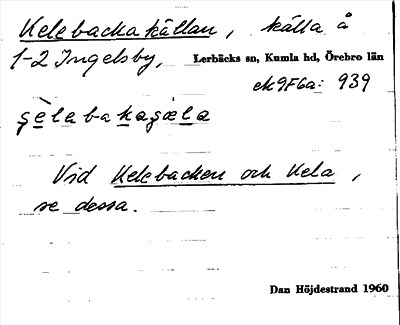 Kelebackakällan, källa å
1-2 Ingelsby, Lerbäcks sn, Kumla hd, Örebro län
ek 9F6a: 939
çèlabakaçæla
Vid Kelebacken och Kela,
se dessa.
Dan Höjdestrand 1960